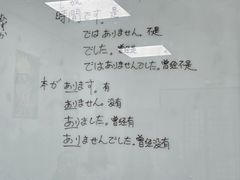 時間です。是
ではありません。不是
でした。曾经是
ではありませんでした。曾经不是
本が あります。有
ありません。没有
ありました。曾经有
ありませんでした。曾经没有